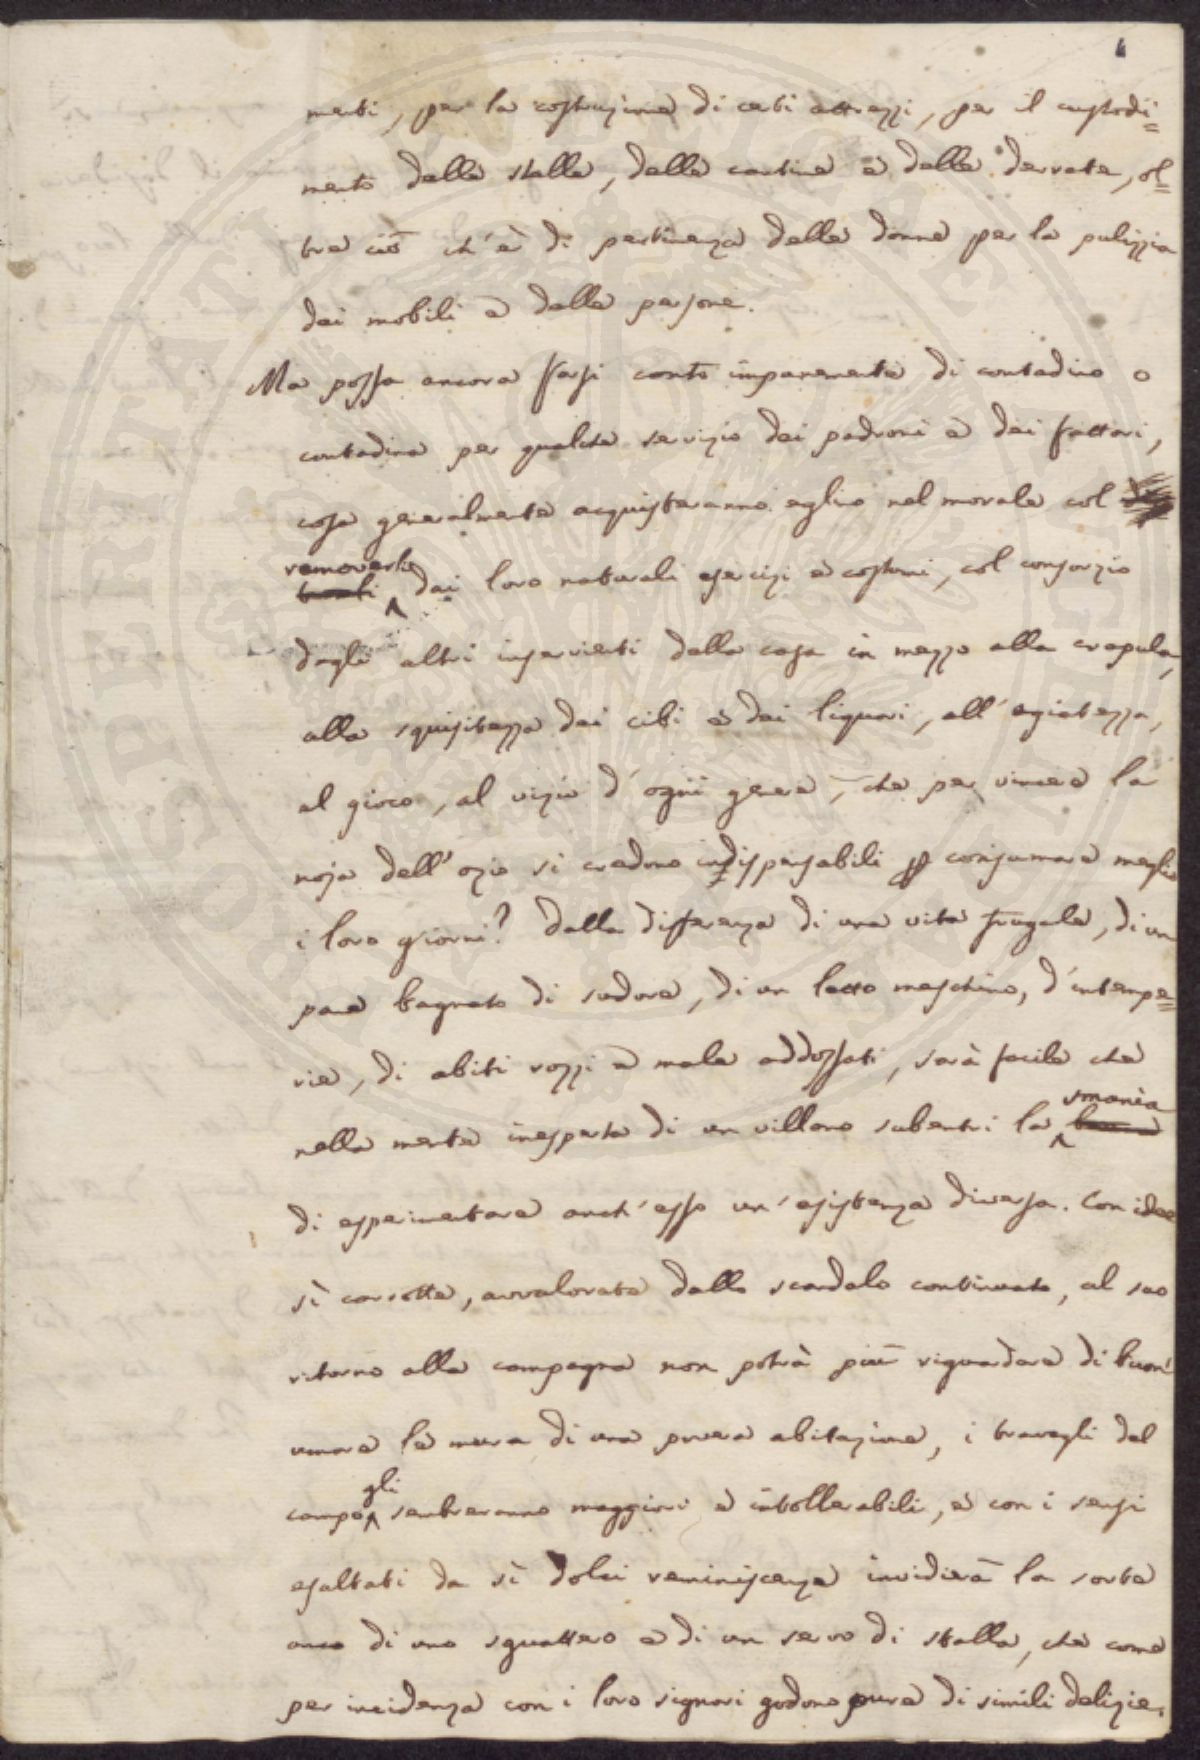 menti, per la costruzione di certi attrezzi, per il custodi=
mento delle stalle, delle cantine e delle derrate, ol=
tre ciò ch'è di pertinenza delle donne per la pulizzia
dei mobili e delle persone.
Ma possa ancora farsi conto impunemente di contadino o
contadina per qualche servizio dei padroni e dei fattori,
cosa generalmente acquisteranno eglino nel morale col
removerli dai loro naturali esercizi e costumi, col consorzio
degli altri inservienti della casa in mezzo alla crapula,
alla squisitezza dei cibi e dei liquori, all'agiatezza,
al gioco, al vizio d'ogni genere, che per vincere la
noja dell'ozio si credono indispensabili p consumare meglio
i loro giorni? Dalla differenza di una vita frugale, di un
pane bagnato di sudore, di un letto meschino, d'intempe=
rie, di abiti rozzi e male addossati, sarà facile che
nella mente inesperta di un villano subentri la smania
di esperimentare anch'esso un'esistenza diversa. Con idee
sì corrotte, avvalorate dallo scandalo continuato, al suo
ritorno alla campagna non potrà più riguardare di buon'
umore le mura di una povera abitazione, i travagli del
campo gli sembreranno maggiori e intollerabili, e con i sensi
esaltati da sì dolci reminiscenze invidierà la sorte
anco di uno sguattero e di un servo di stalla, che come
per incidenza con i loro signori godono pure di simili delizie.